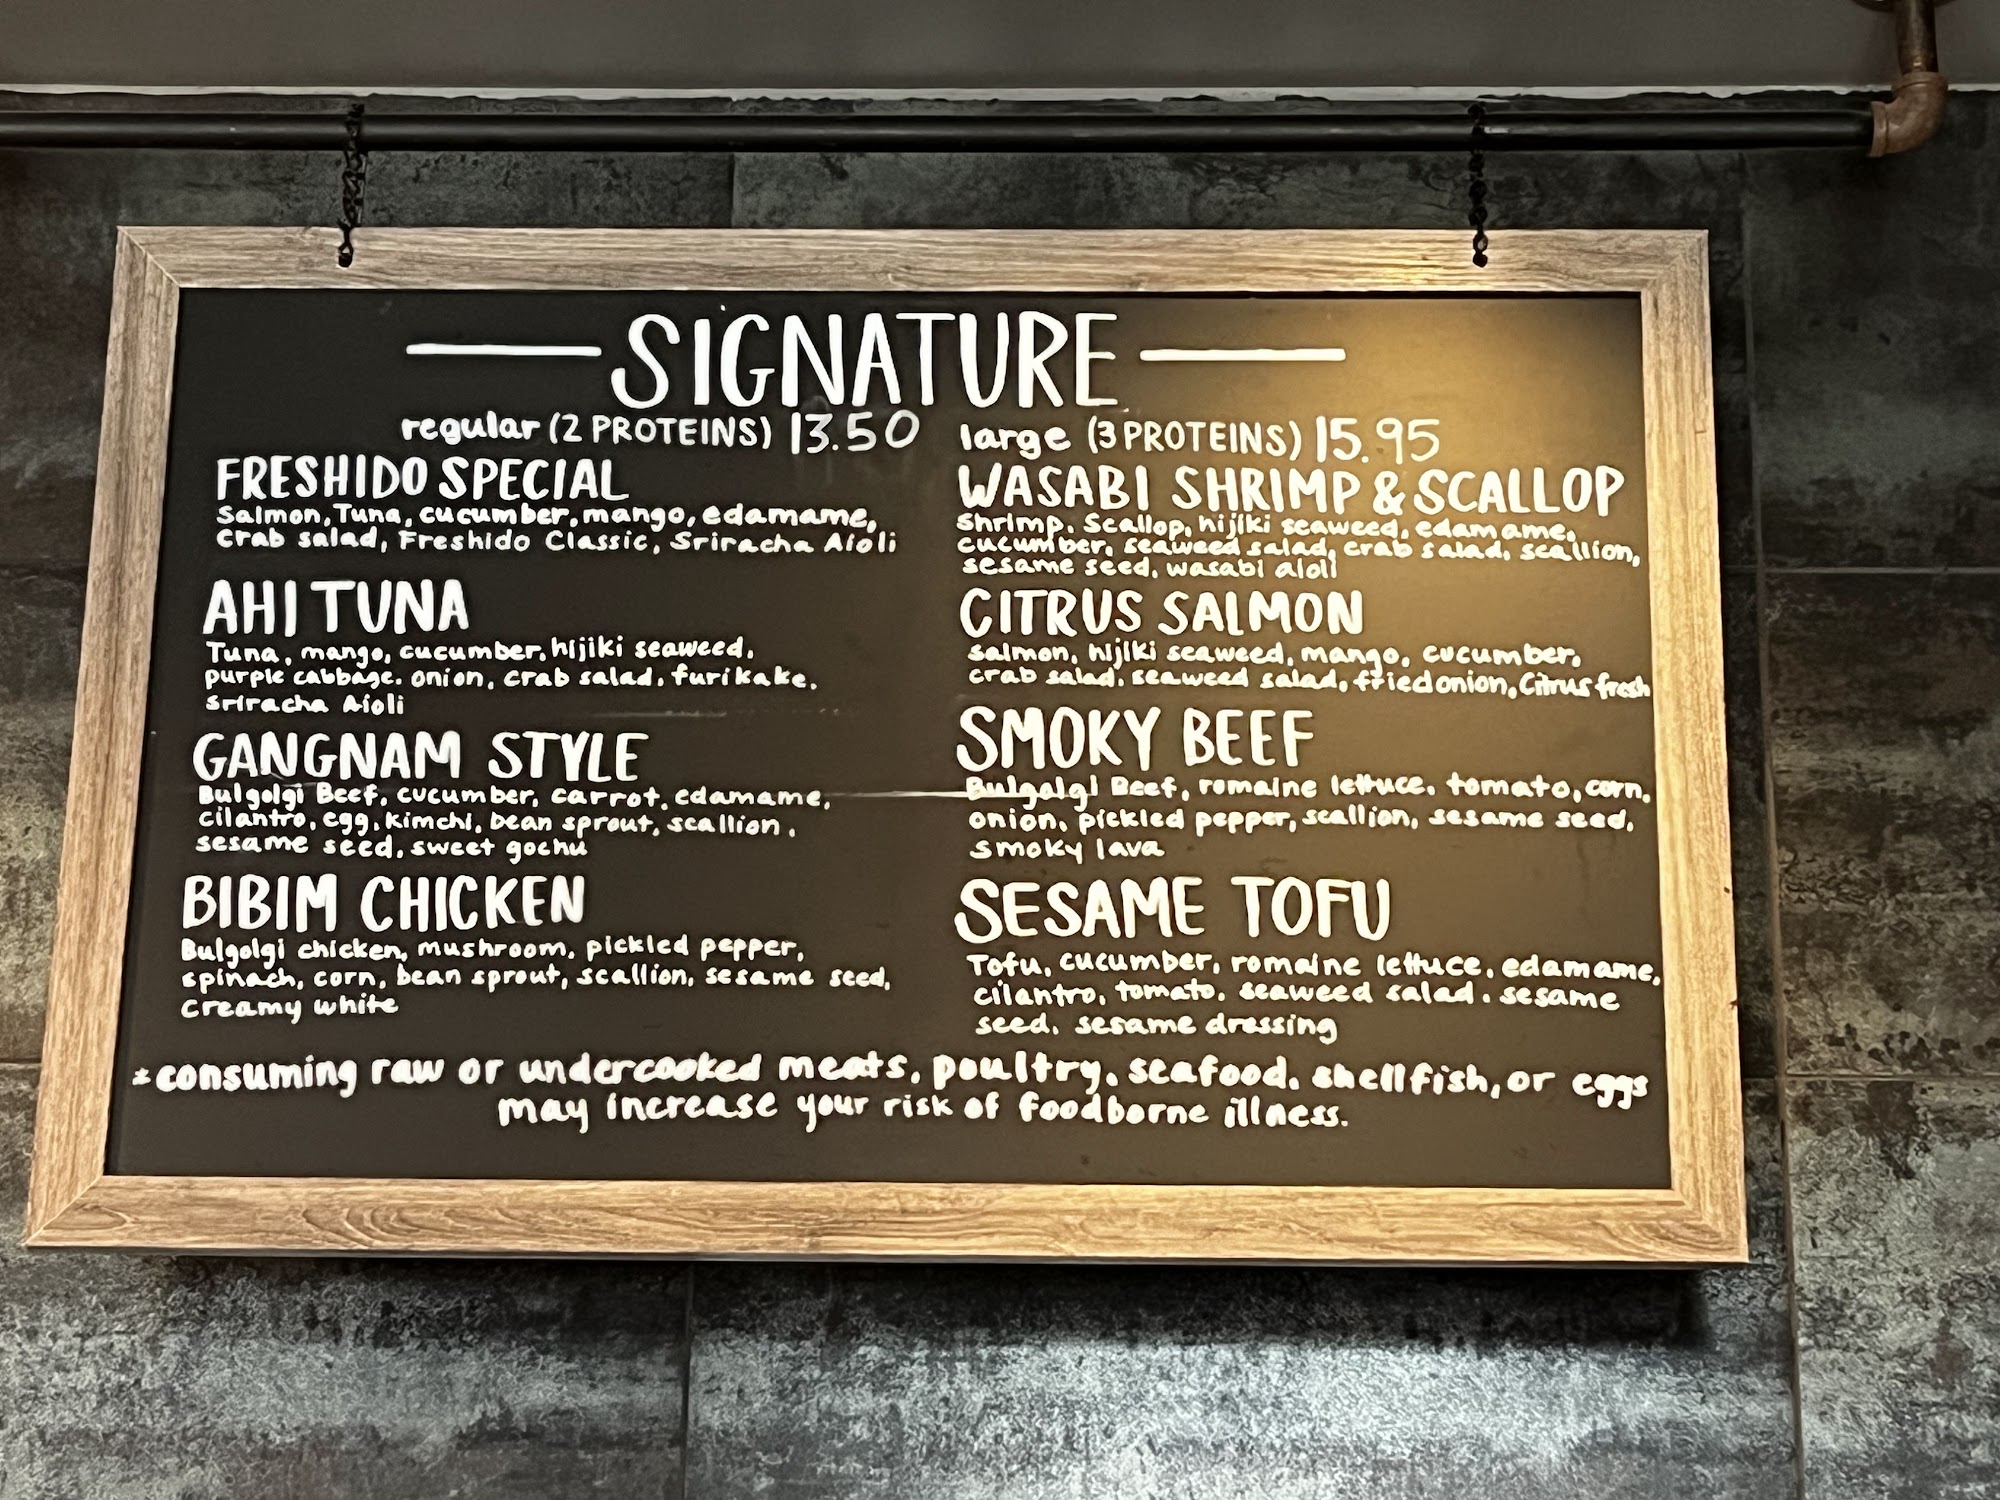 SIGNATURE
regular (2 PROTEINS) 13.50
large (3 PROTEINS) 15.95
FRESHIDO SPECIAL
Salmon, Tuna, cucumber, mango, edamame,
crab salad, Freshido Classic, Sriracha Aioli
AHI TUNA
Tuna, mango, cucumber, hijiki seaweed,
purple cabbage, onion, crab salad, furikake,
sriracha Aioli
GANGNAM STYLE
Bulgolgi Beef, cucumber, carrot, edamame,
cilantro, egg, kimchi, bean sprout, scallion,
sesame seed, sweet gochu
BIBIM CHICKEN
Bulgolgi chicken, mushroom, pickled pepper,
spinach, corn, bean sprout, scallion, sesame seed,
creamy white
WASABI SHRIMP & SCALLOP
Shrimp, Scallop, hijiki seaweed, edamame,
cucumber, seaweed salad, crab salad, scallion,
sesame seed, wasabi aioli
CITRUS SALMON
salmon, hijiki seaweed, mango, cucumber,
crab salad, seaweed salad, fried onion, Citrus fresh
SMOKY BEEF
Bulgolgi Beef, romaine lettuce, tomato, corn,
onion, pickled pepper, scallion, sesame seed,
smoky lava
SESAME TOFU
Tofu, cucumber, romaine lettuce, edamame,
cilantro, tomato, seaweed salad, sesame
seed, sesame dressing
*consuming raw or undercooked meats, poultry, seafood, shellfish, or eggs
may increase your risk of foodborne illness.